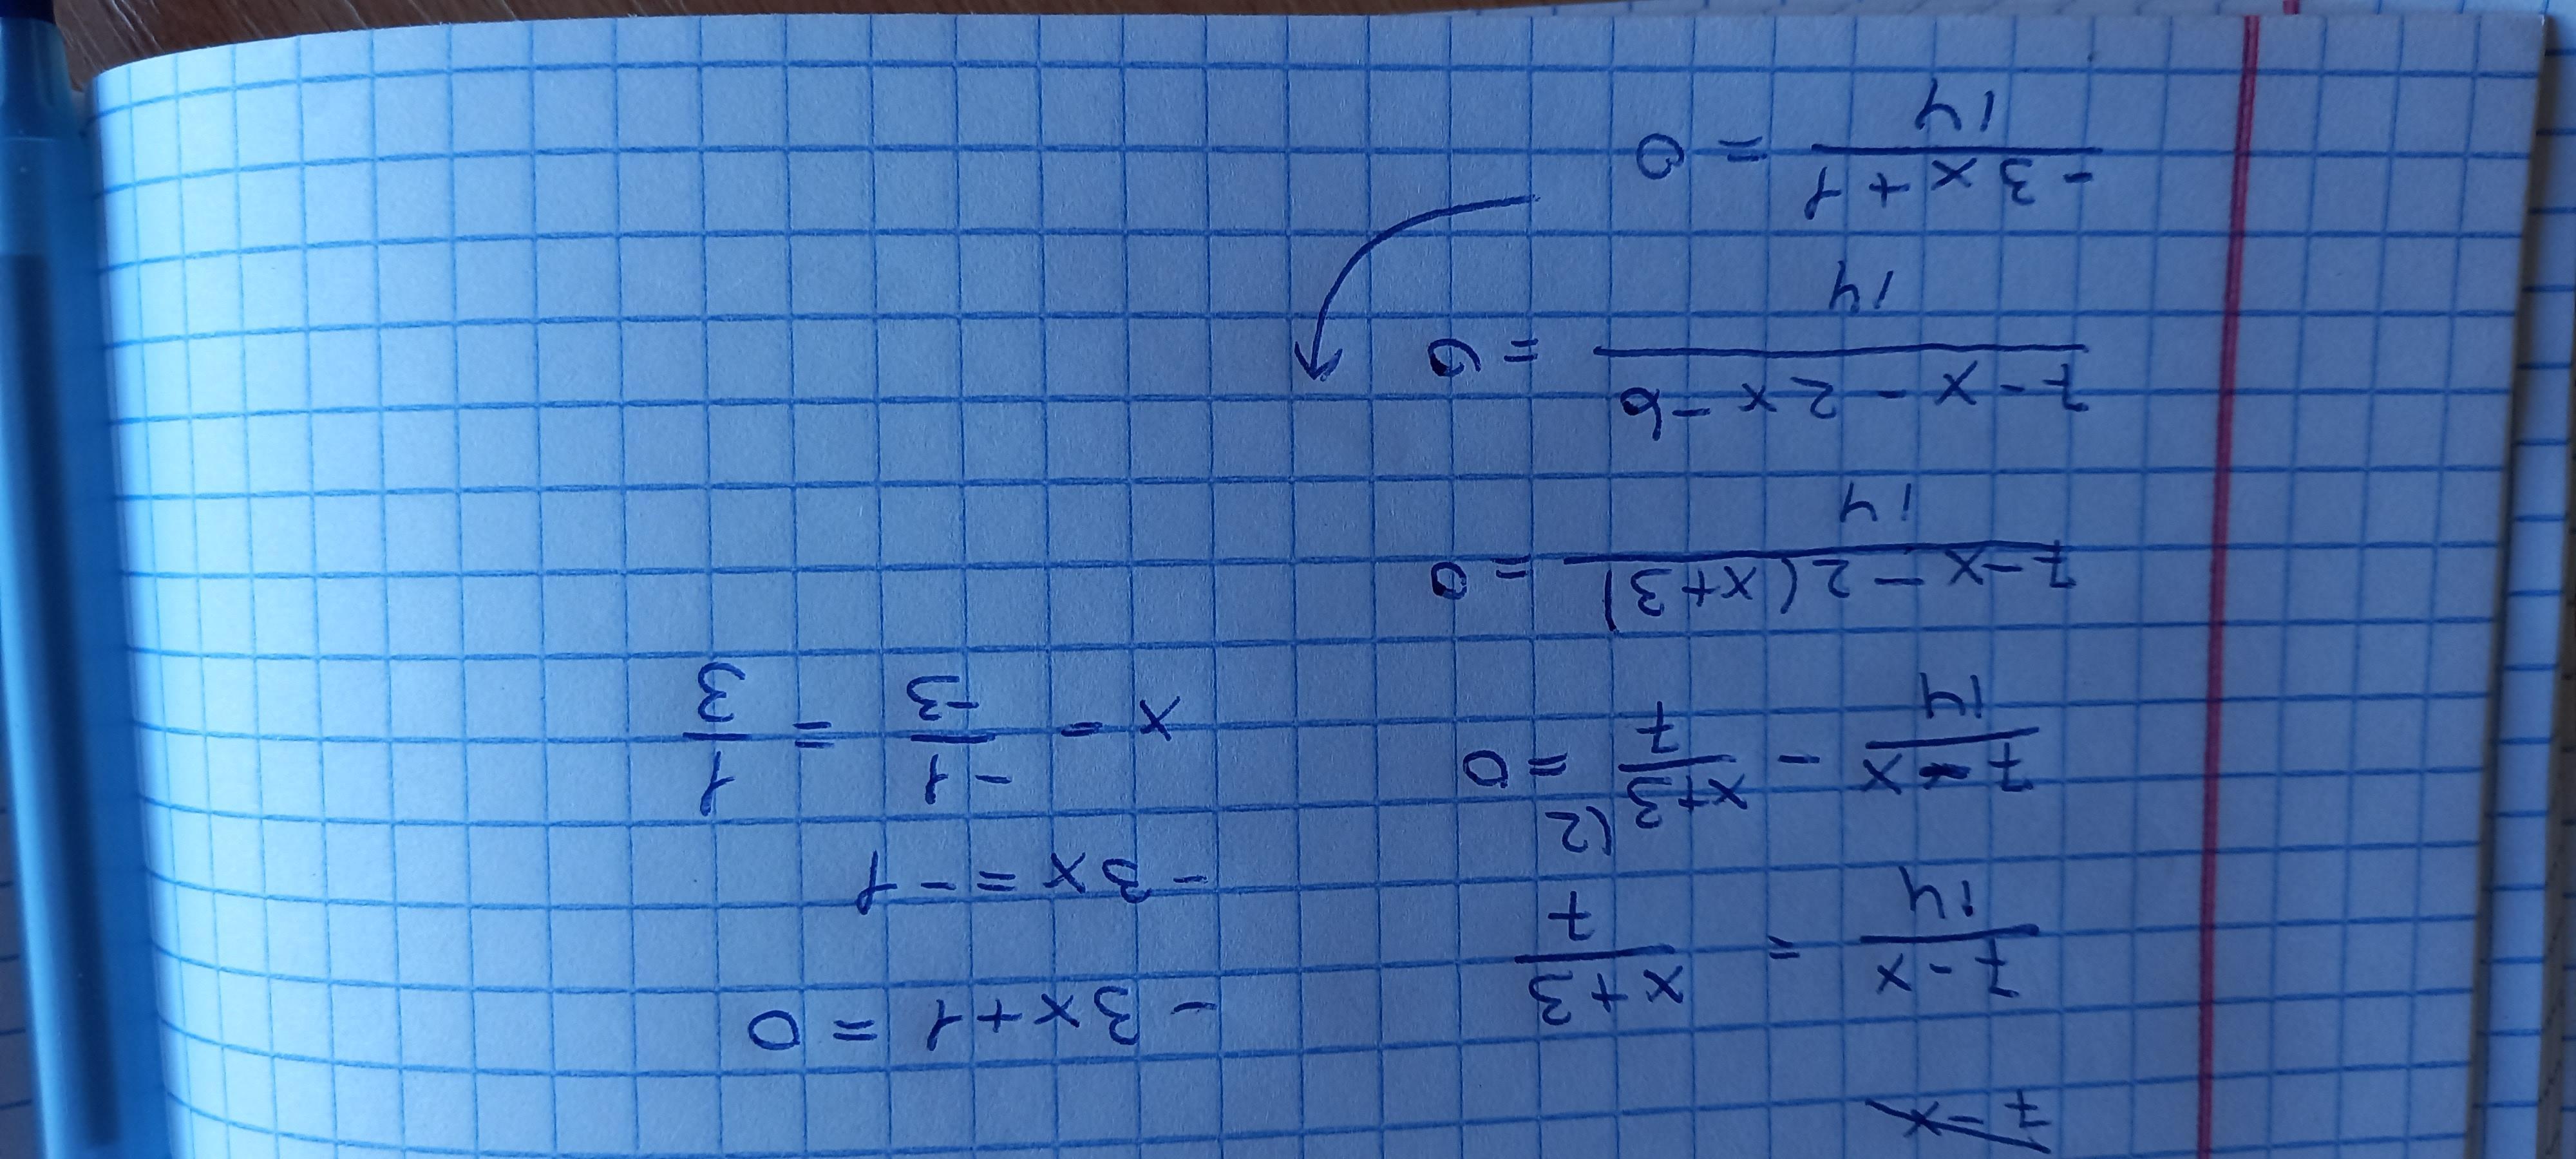 7-x
(7-x)/14 = (x+3)/7
(7-x)/14 - (x+3)/7 (2 = 0
(7-x-2(x+3))/14 = 0
(7-x-2x-6)/14 = 0
(-3x+1)/14 = 0
-3x+1 = 0
-3x = -1
x = -1/-3 = 1/3